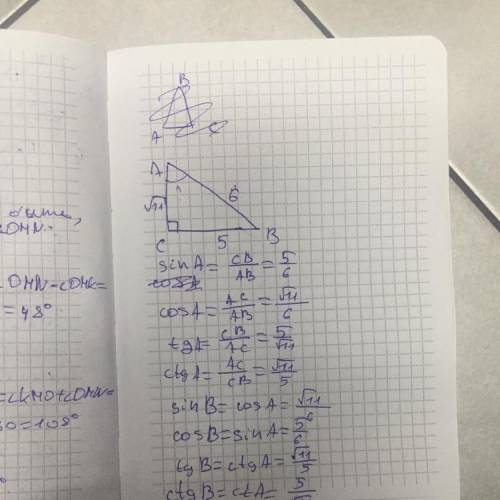 B
A
C
A
√11
6
C
5
B
sinA = CB/AB = 5/6
cosA
cosA = AC/AB = √11/6
tgA = CB/AC = 5/√11
ctgA = AC/CB = √11/5
sinB = cosA = √11/6
cosB = sinA = 5/6
tgB = ctgA = √11/5
ctgB = ctA = 5
= 48°
= 108°